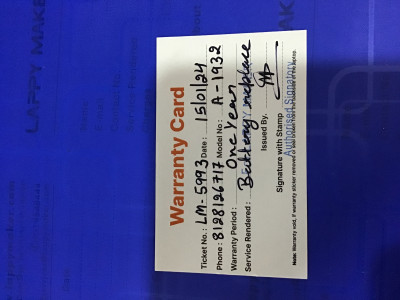 LAPPY MAKE
Warranty Card
Ticket No.: LM-5993 Date: 15/01/24
Phone: 8128126717 Model No.: A-1932
Warranty Period: One Year
Service Rendered: Battery replace
Issued By.
Signature with Stamp
Authorised Signatory
Note: Warranty void, if warranty sticker removed or